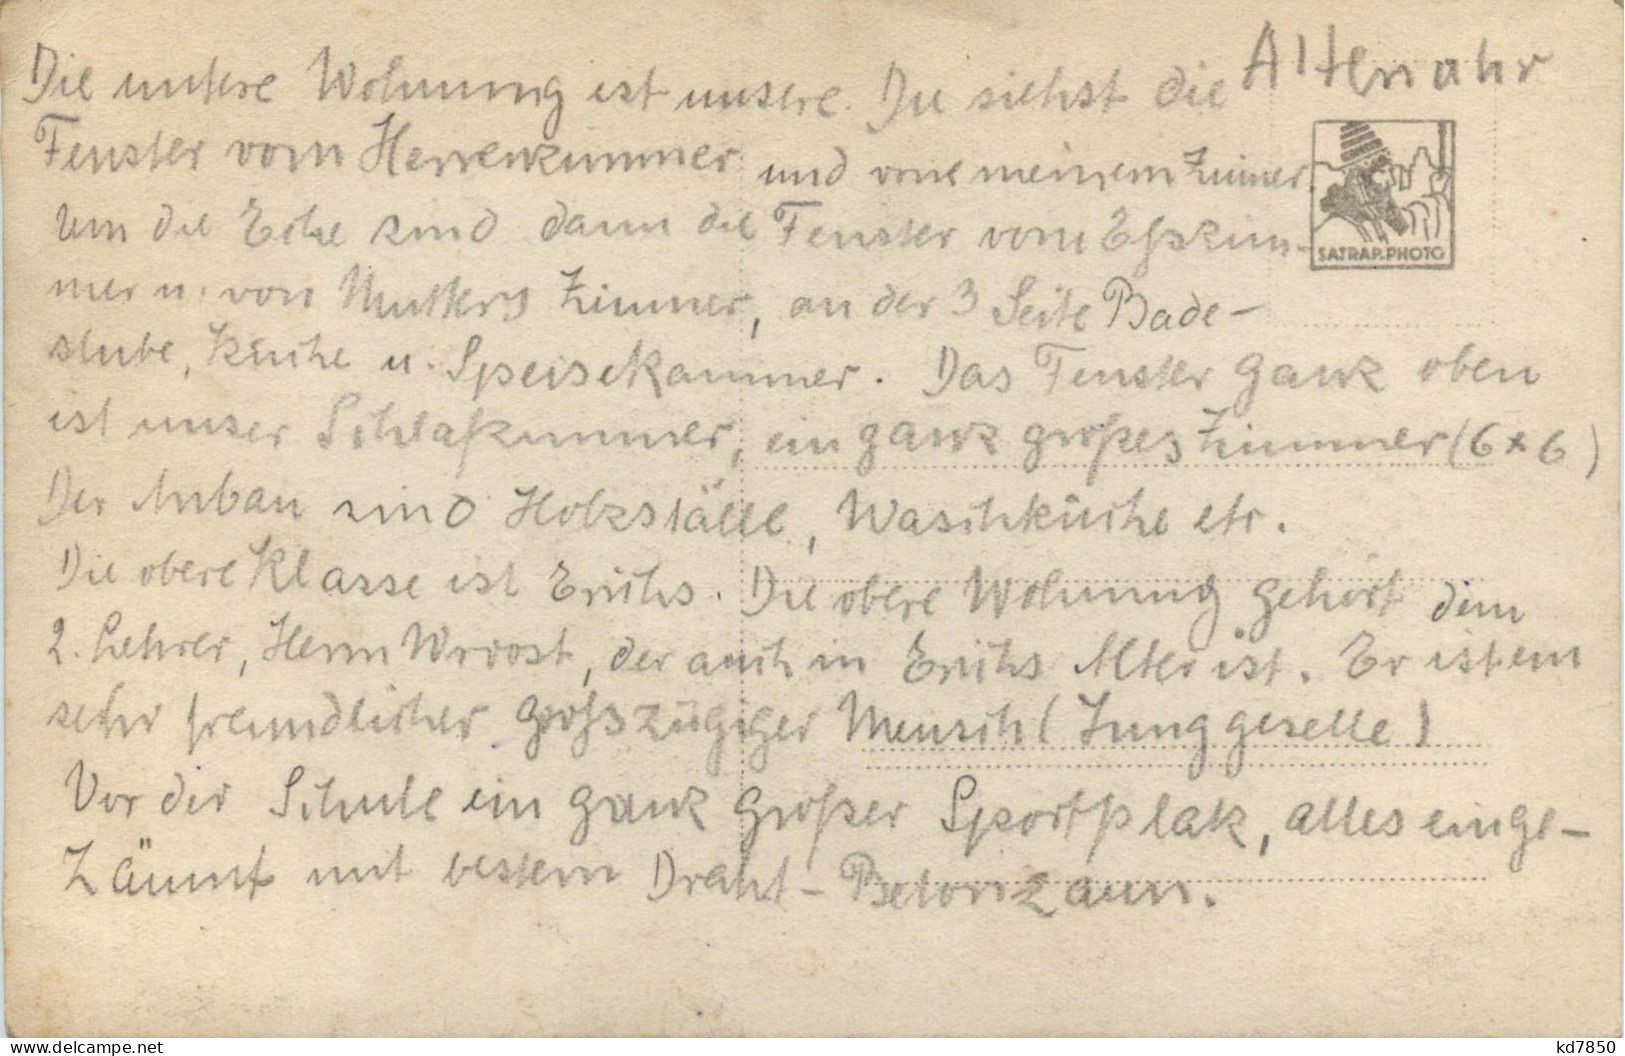 Altenahr
Die untere Wohnung ist unsere. Du siehst die
Fenster vom Herrenzimmer und von meinem Zimmer
Um die Ecke sind dann die Fenster vom Eßzim-
mer u. von Mutters Zimmer, an der 3 Seite Bade-
stube, Küche u. Speisekammer. Das Fenster ganz oben
ist unser Schlafzimmer, ein ganz großes Zimmer (6 x 6)
Der Anbau sind Holzställe, Waschküche etc.
Die obere Klasse ist Erichs. Die obere Wohnung gehört dem
2. Lehrer, Herrn, der auch in Erichs Alter ist. Er ist ein
sehr freundlicher großzügiger Mensch (Junggeselle)
Vor der Schule ein ganz großer Sportplatz, alles einge-
zäunt mit bestem Draht-Betonzaun.
SATRAP-PHOTO
kd7850